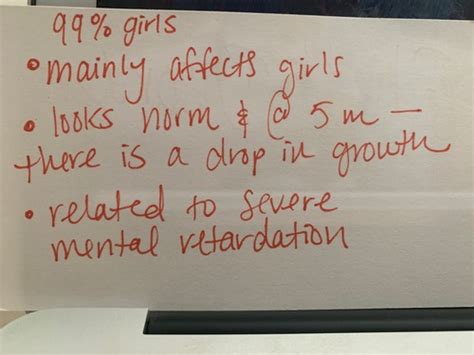 99% girls
• mainly affects girls
• looks norm & @ 5 m —
there is a drop in growth
• related to severe
mental retardation